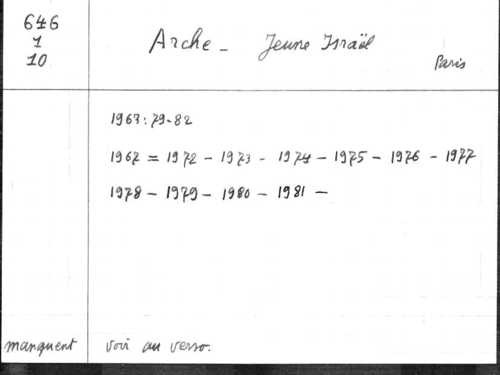 646
1
10
Arche - Jeune Israël
Paris
1963: 79-82
1967 = 1972 - 1973 - 1974 - 1975 - 1976 - 1977
1978 - 1979 - 1980 - 1981 -
manquent voir au verso.